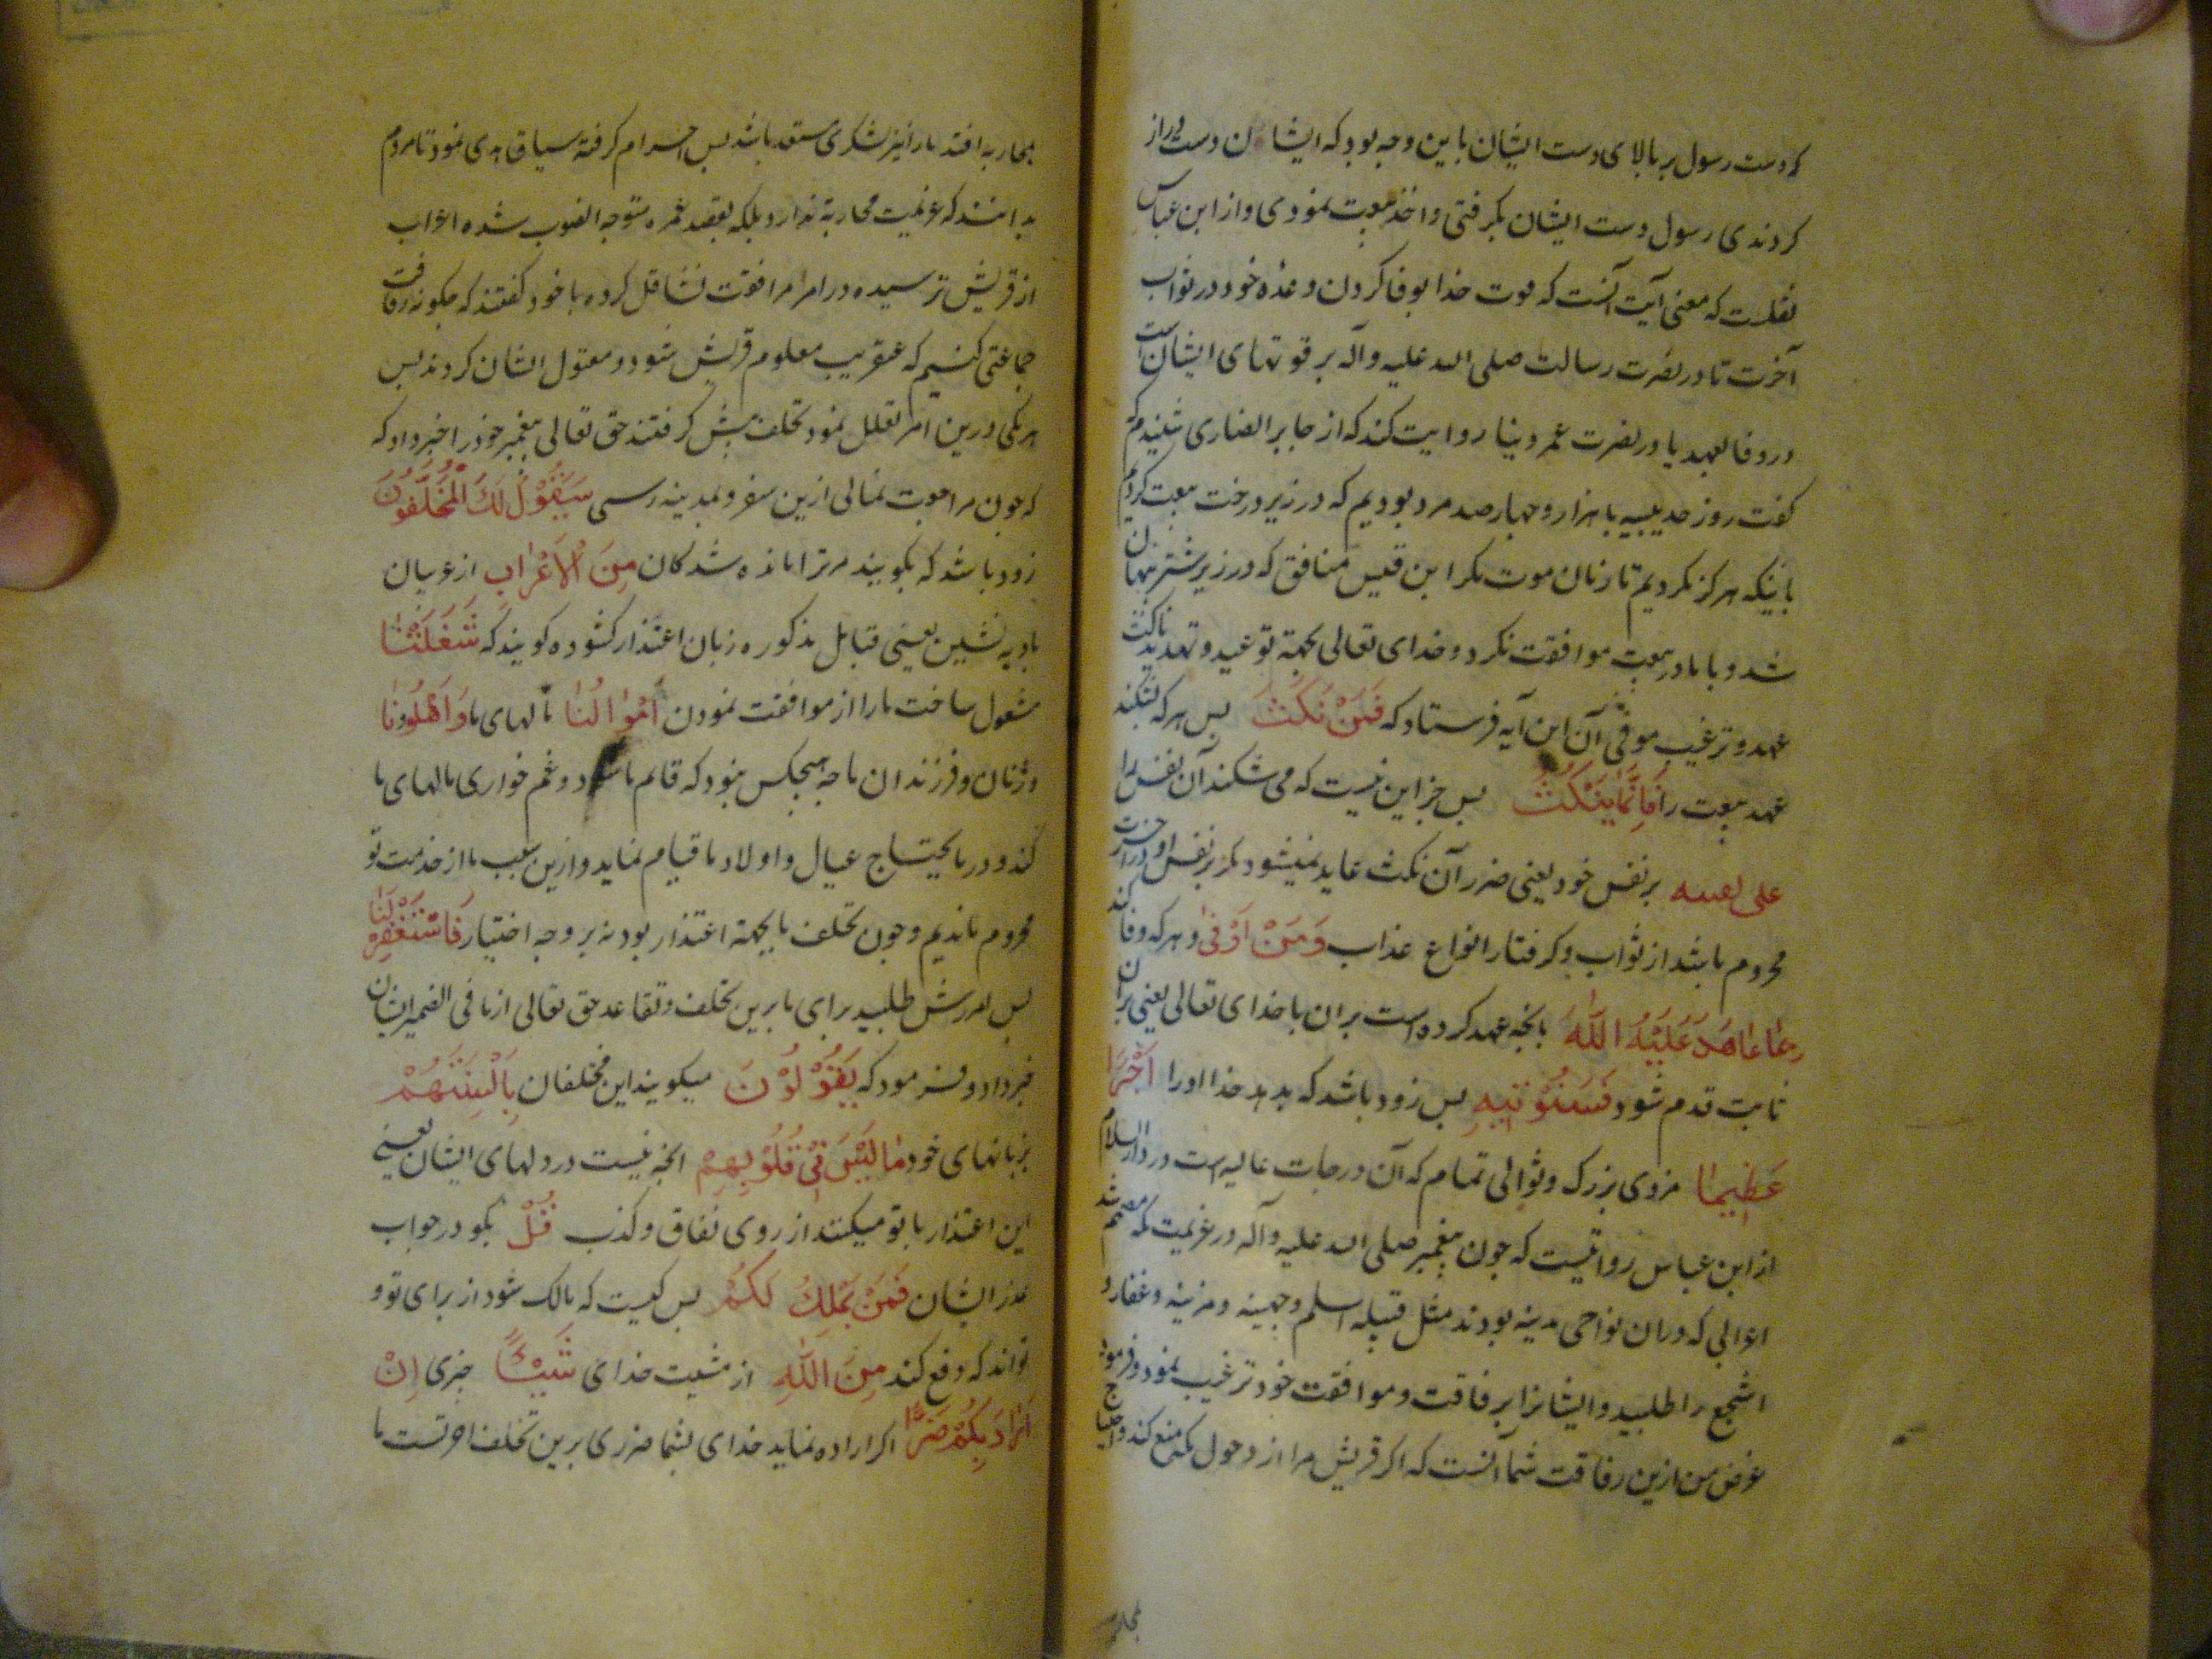 که دست رسول بر بالای دست ایشان باین وجه بود که ایشان دست دراز
کردندی رسول دست ایشان بکرفتی و اخذ بیعت نمودی و از ابن عباس
نقلست که معنی آیت آنست که قوت خدا بوفا کردن وعده خود در ثواب
آخرت تا در نصرت رسالت صلی الله علیه وآله بر قوتهای ایشان است
در وفا بعهد یا در نصرت عمر دینار روایت کند که از جابر انصاری شنیدم که
کفت روز حدیبیه با هزار و چهارصد مرد بودیم که در زیر درخت بیعت کردیم
باینکه هرکز نکردیم تا زنان موت مکر ابن قیس منافق که در زیر شتر پنهان
شد و با ما در بیعت موافقت نکرد و خدای تعالی بجهة توعید و تهدید ناکث
عهد و ترغیب موفی آن این آیه فرستاد که فَمَنْ نَکَثَ پس هر که بشکند
عهد بیعت را فَاِنَّمٰا یَنْکُثُ پس جز این نیست که می شکند آن نقض را
علی نفسه بر نفس خود یعنی ضرر آن نکث عاید نمیشود مکر بر نفس او در آخرت
محروم باشد از ثواب و کرفتار انواع عذاب وَمَنْ اَوْفیٰ و هر که وفا کند
بِمٰا عٰاهَدَ عَلَیْهُ اللّٰهَ بانچه عهد کرده است بران با خدای تعالی یعنی بران
ثابت قدم شود فَسَنُؤْتیهِ پس زود باشد که بدهد خدا او را اَجْرًا
عَظیمًا مزدی بزرک و ثوابی تمام که آن درجات عالیه است در دارالسلام
از ابن عباس روایتیست که چون پیغمبر صلی الله علیه وآله در عزیمت مکه مصمم شد
اعرابی که دران نواحی مدینه بودند مثل قبیله اسلم وجهینه و مزینه وغفار و
اشجع را طلبید و ایشانرا بر رفاقت و موافقت خود ترغیب نمود و فرمود
غرض من ازین رفاقت شما آنست که اکر قریش مرا از دخول مکه منع کند و احتیاج
بمحاربه افتد ما را نیز لشکری مستعد باشد پس احرام کرفته سیاق هدی نمود تا مردم
بدانند که عزیمت محاربه ندارد بلکه بقصد عمره متوجه الصوب شده اعراب
از قریش ترسیده در امر مرافقت تثاقل کرده با خود کفتند که چکونه رفاقت
جماعتی کنیم که عنقریب معلوم قریش شود و مقتول ایشان کردند پس
هر یکی درین امر تعلل نمود تخلف پیش کرفتند حق تعالی پیغمبر خود را خبر داد که
که چون مراجعت نمائی ازین سفر و بمدینه رسی سَیَقُوْلُ لَکَ الْمُخَلَّفُوْنَ
زود باشد که بکویند مر ترا بازمانده شدکان مِنَ الْاَعْرٰابِ از عربان
بادیه نشین یعنی قبایل مذکوره زبان اعتذار کشوده کویند که شَغَلَتْنٰا
مشغول ساخت ما را از موافقت نمودن اَمْوٰالُنٰا مالهای ما وَاَهْلُونٰا
و زنان و فرزندان ما چه هیچکس نبود که قائم مقام ما شود و غم خواری مالهای ما
کند و در مایحتاج عیال و اولاد ما قیام نماید و ازین سبب ما از خدمت تو
محروم ماندیم و چون تخلف ما بجهة اعتذار بود نه بر وجه اختیار فَاسْتَغْفِرْ لَنٰا
پس امرزش طلبید برای ما برین تخلف و تقاعد حق تعالی از ما فی الضمیر ایشان
خبر داد و فرمود که یَقُوْلُوْنَ میکویند این مخلفان بِاَلْسِنَتِهِمْ
بزبانهای خود مٰا لَیْسَ فیْ قُلُوْبِهِمْ انچه نیست در دلهای ایشان یعنی
این اعتذار با تو میکنند از روی نفاق و کذب قُلْ بکو در جواب
عذر ایشان فَمَنْ یَمْلِکُ لَکُمْ پس کیست که مالک شود از برای تو و
تواند که دفع کند مِنَ اللّٰهِ از مشیت خدای شَیْئًا چیزی اِنْ
اَرٰادَ بِکُمْ ضَرًّا اکر اراده نماید خدای بشما ضرری برین تخلف